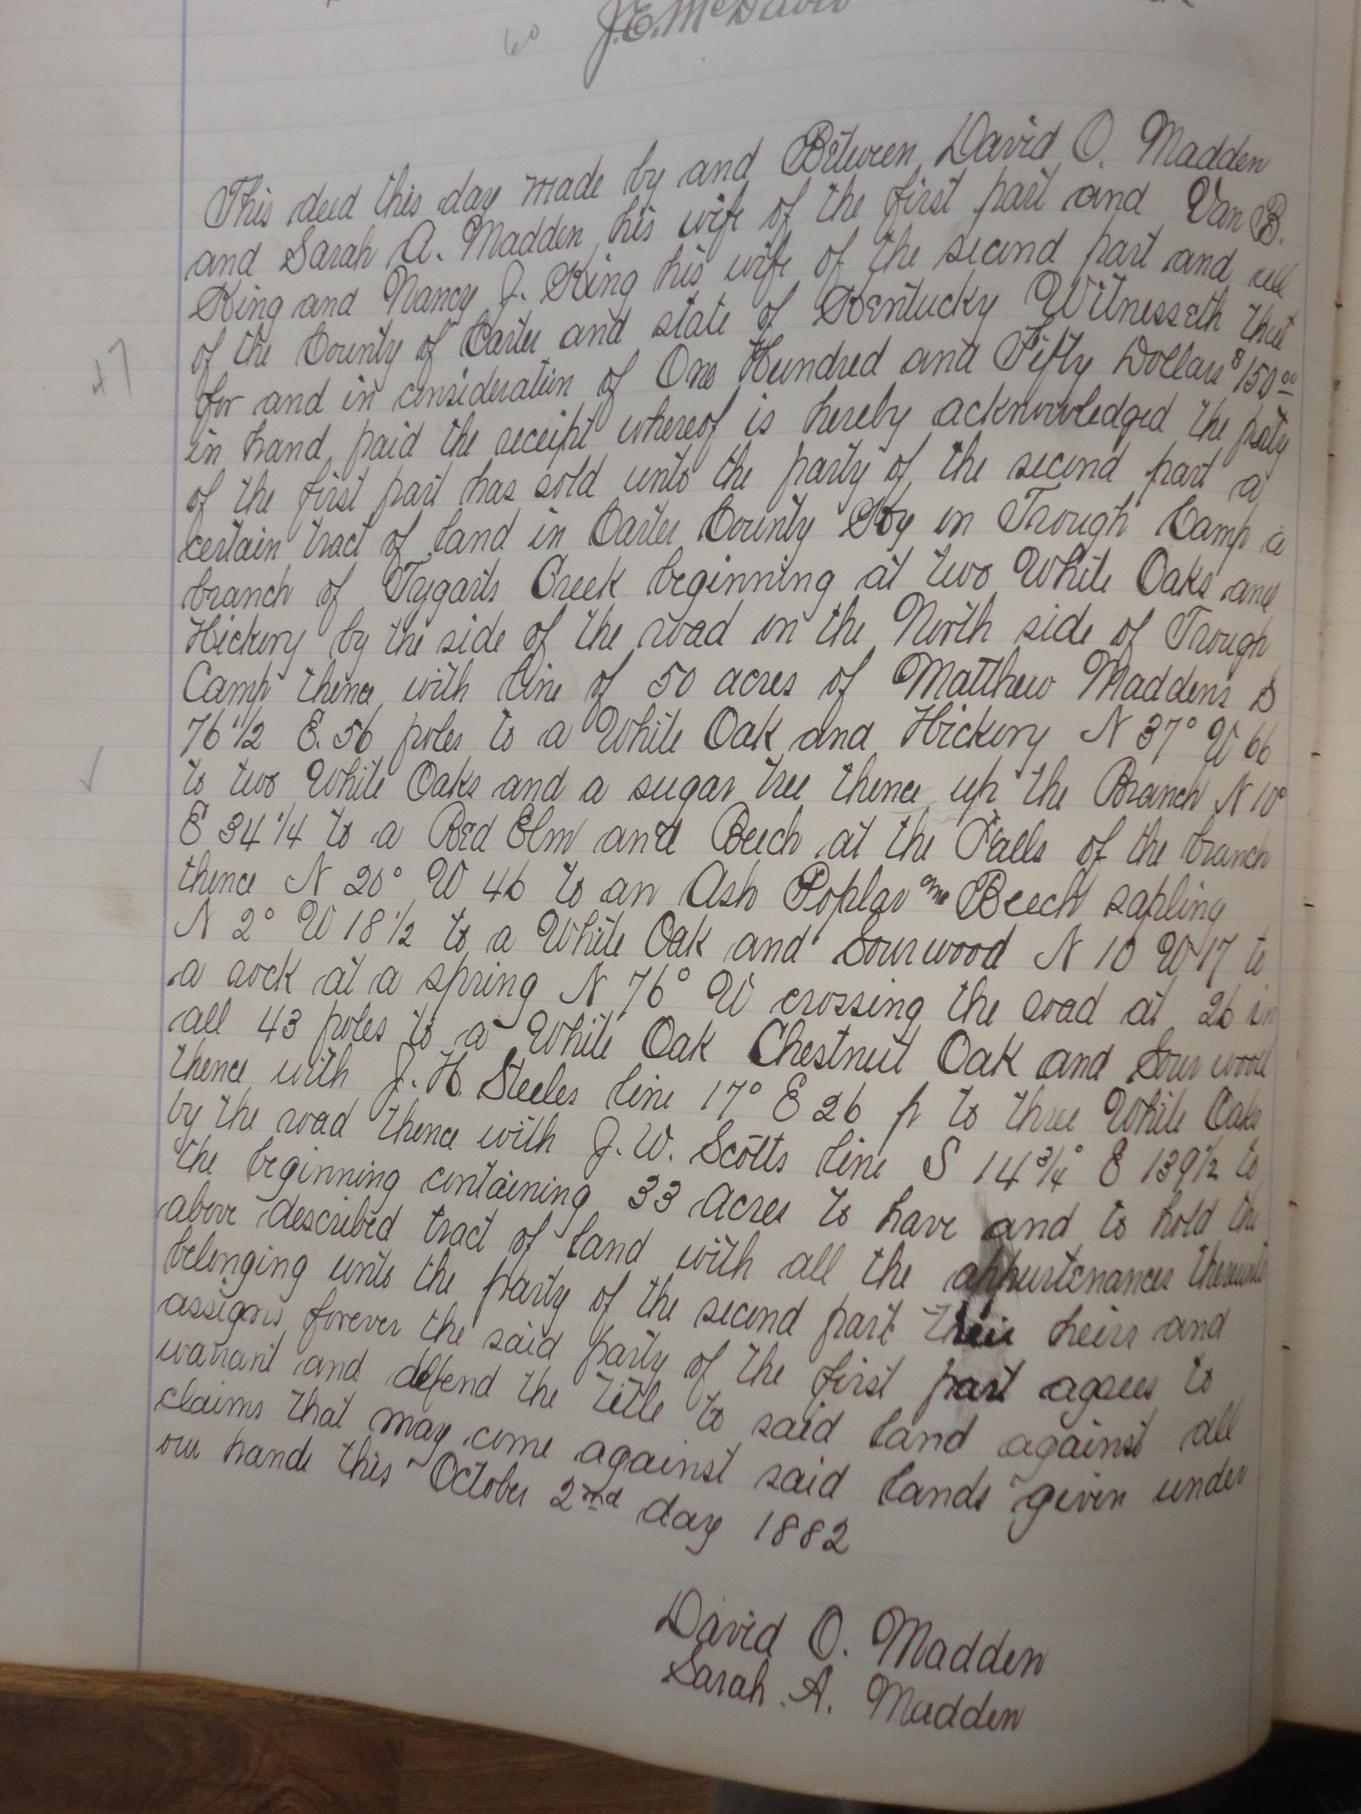 60 J.E. McDavid
This deed this day made by and Between David O. Madden
and Sarah A. Madden his wife of the first part and Van B.
King and Nancy J. King his wife of the second part and all
of the County of Carter and state of Kentucky Witnesseth that
for and in consideration of One Hundred and Fifty Dollars $150.00
47
in hand paid the receipt whereof is hereby acknowledged the party
of the first part has sold unto the party of the second part a
certain tract of land in Carter County Ky on Trough Camp a
branch of Tygarts Creek beginning at two White Oaks and
Hickory by the side of the road on the North side of Trough
Camp thence with line of 50 acres of Matthew Maddens S
76 1/2 E. 56 poles to a White Oak and Hickory N 37° W 66
to two White Oaks and a sugar tree thence up the Branch N 10°
E 34 1/4 to a Red Elm and Beech at the Falls of the branch
thence N 20° W 46 to an Ash Poplar and Beech sapling
N 2° W 18 1/2 to a White Oak and Sourwood N 10 W 17 to
a rock at a spring N 76° W crossing the road at 26 in
all 43 poles to a White Oak Chestnut Oak and Sour wood
thence with J. H. Steeles line 17° E 26 p to three White Oaks
by the road thence with J. W. Scotts line S 14 3/4° E 139 1/2 to
the beginning containing 33 Acres to have and to hold the
above described tract of land with all the appurtenances thereunto
belonging unto the party of the second part their heirs and
assigns forever the said party of the first part agrees to
warrant and defend the title to said land against all
claims that may come against said lands given under
our hands this October 2nd day 1882
David O. Madden
Sarah A. Madden